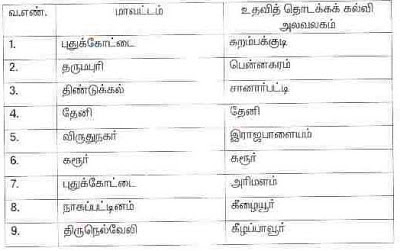 வ.எண். மாவட்டம் உதவித் தொடக்கக் கல்வி
அலவலகம்
1. புதுக்கோட்டை கறம்பக்குடி
2. தருமபுரி பென்னகரம்
3. திண்டுக்கல் சானார்பட்டி
4. தேனி தேனி
5. விருதுநகர் இராஜபாளையம்
6. கரூர் கரூர்
7. புதுக்கோட்டை அரிமளம்
8. நாகப்பட்டினம் கீழையூர்
9. திருநெல்வேலி கீழப்பாவூர்